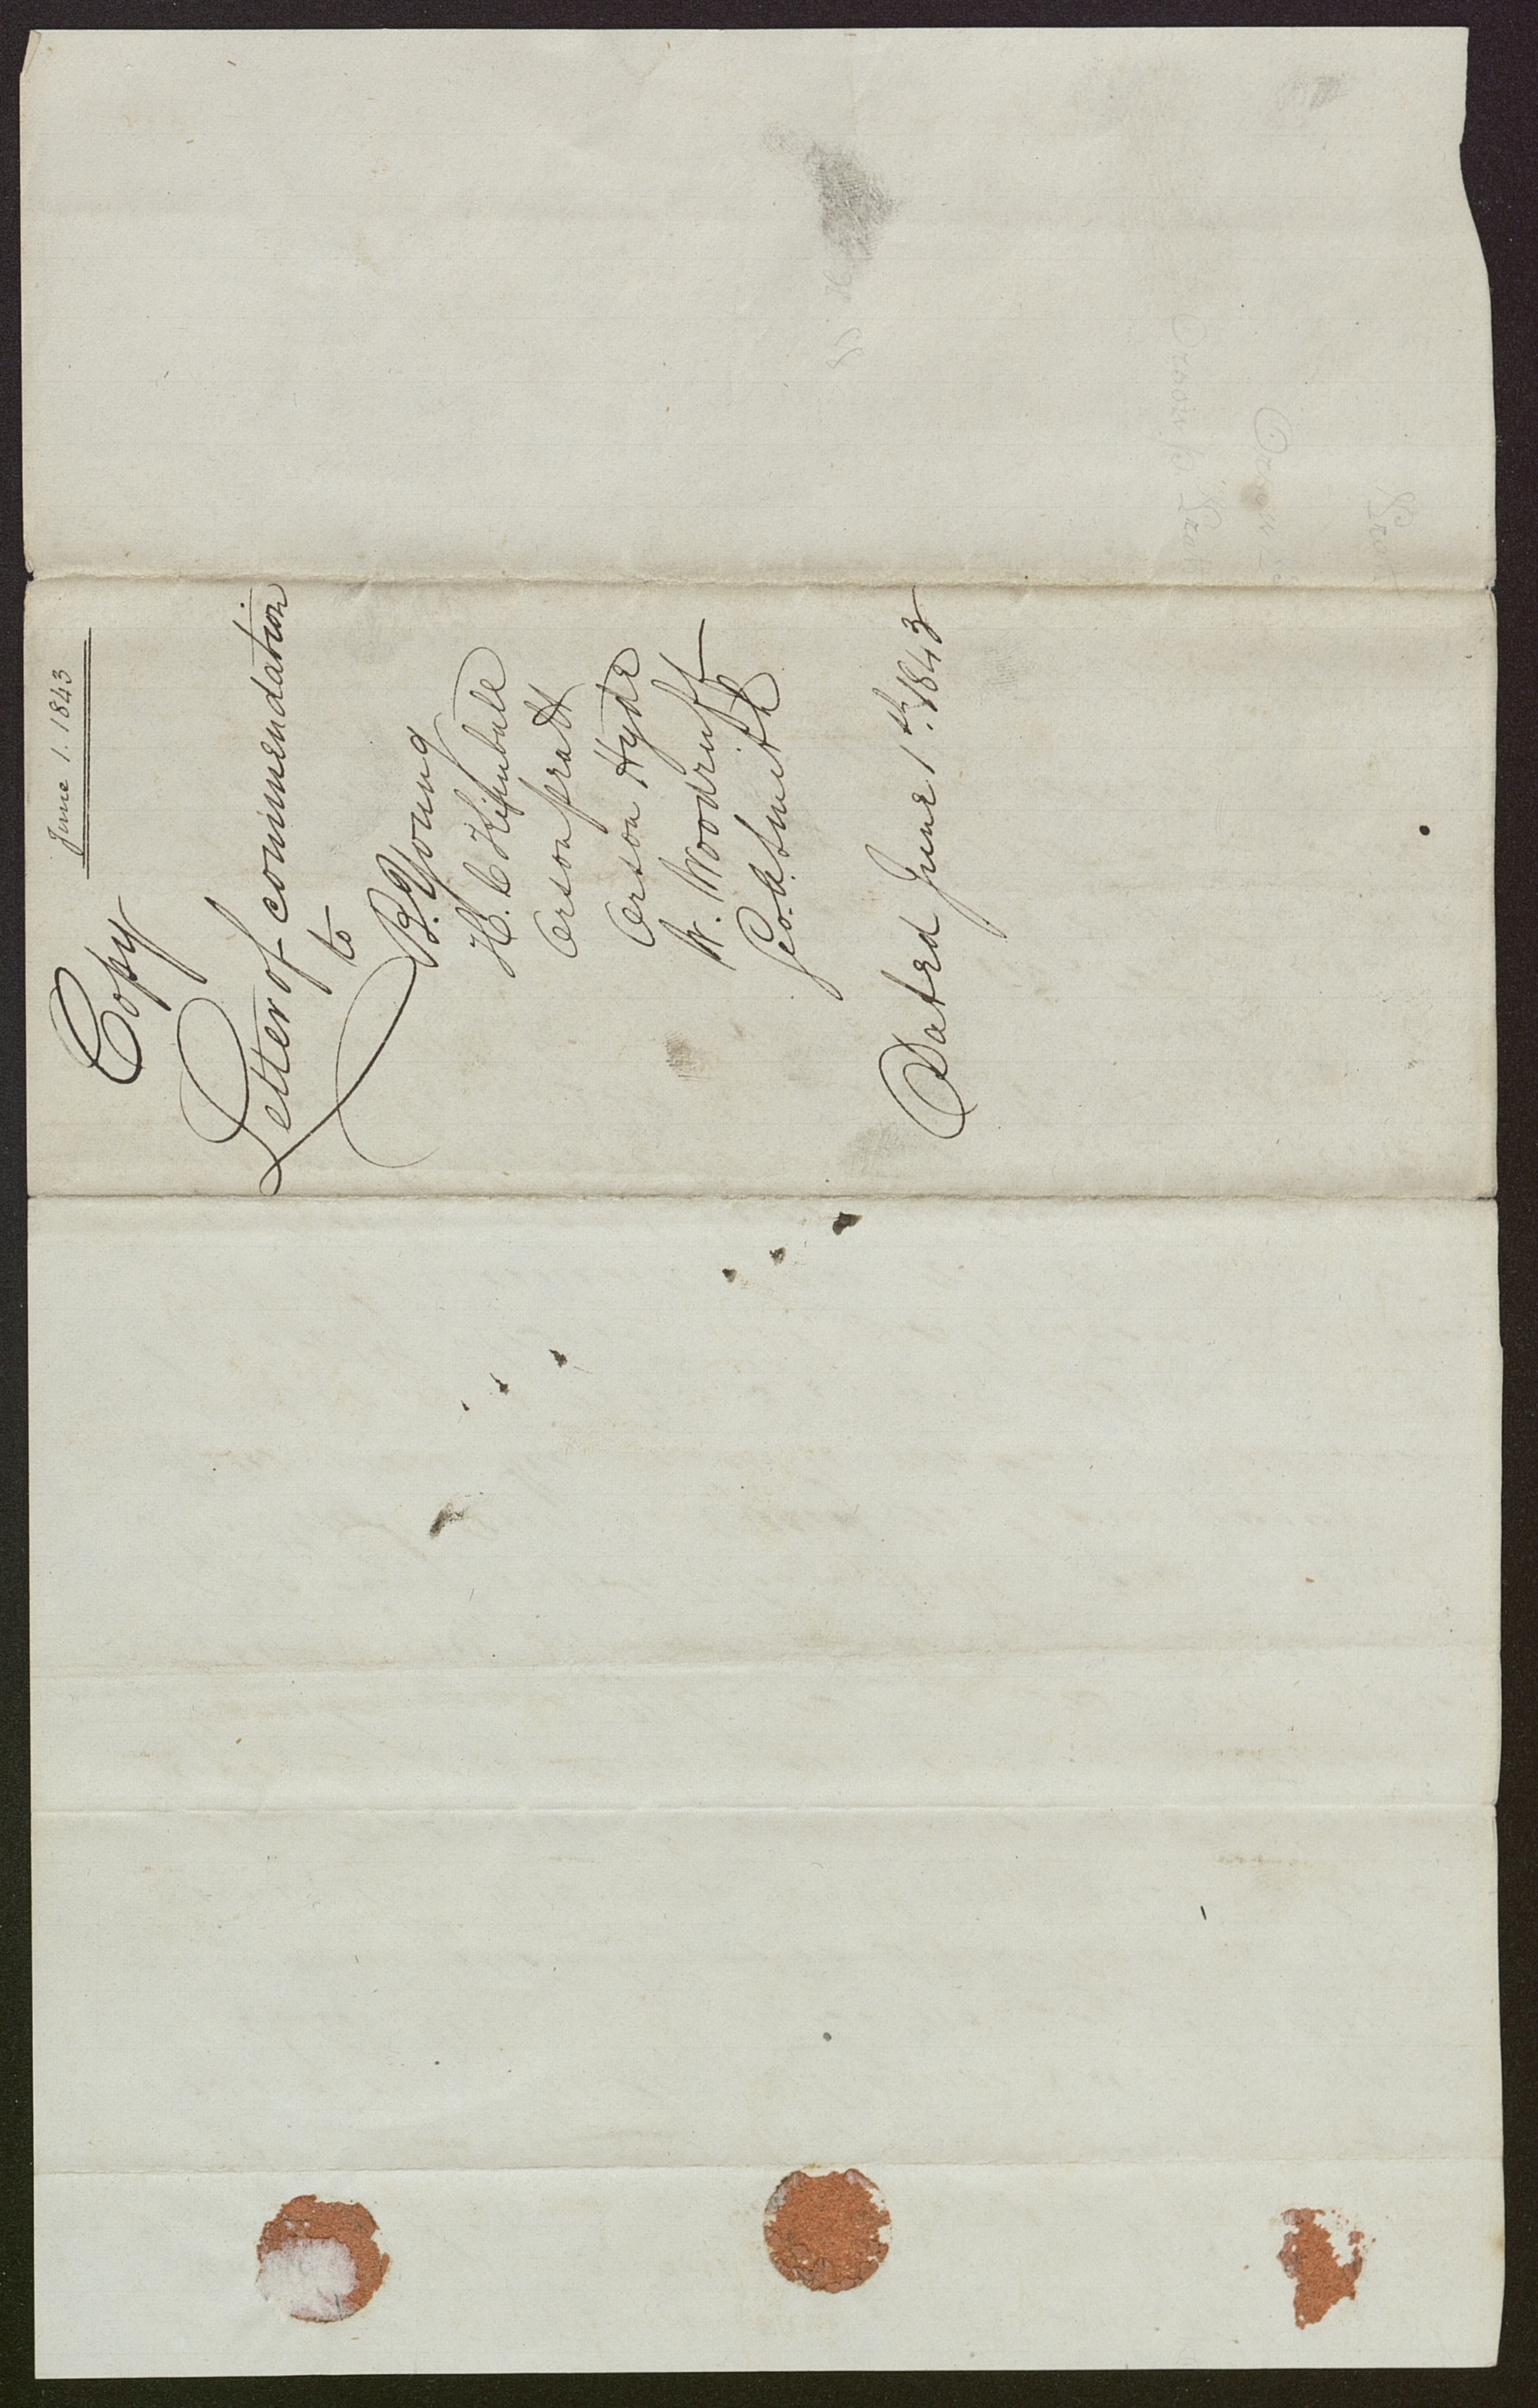 June 1. 1843
Copy
Letter of commendation
to
B. Young
H. C Kimball
Orson pratt
Orson Hyde
W. Woodruff
Geo. A. Smith
Dated June 1th. 1843
Orson
Pratt
Orson
Prat